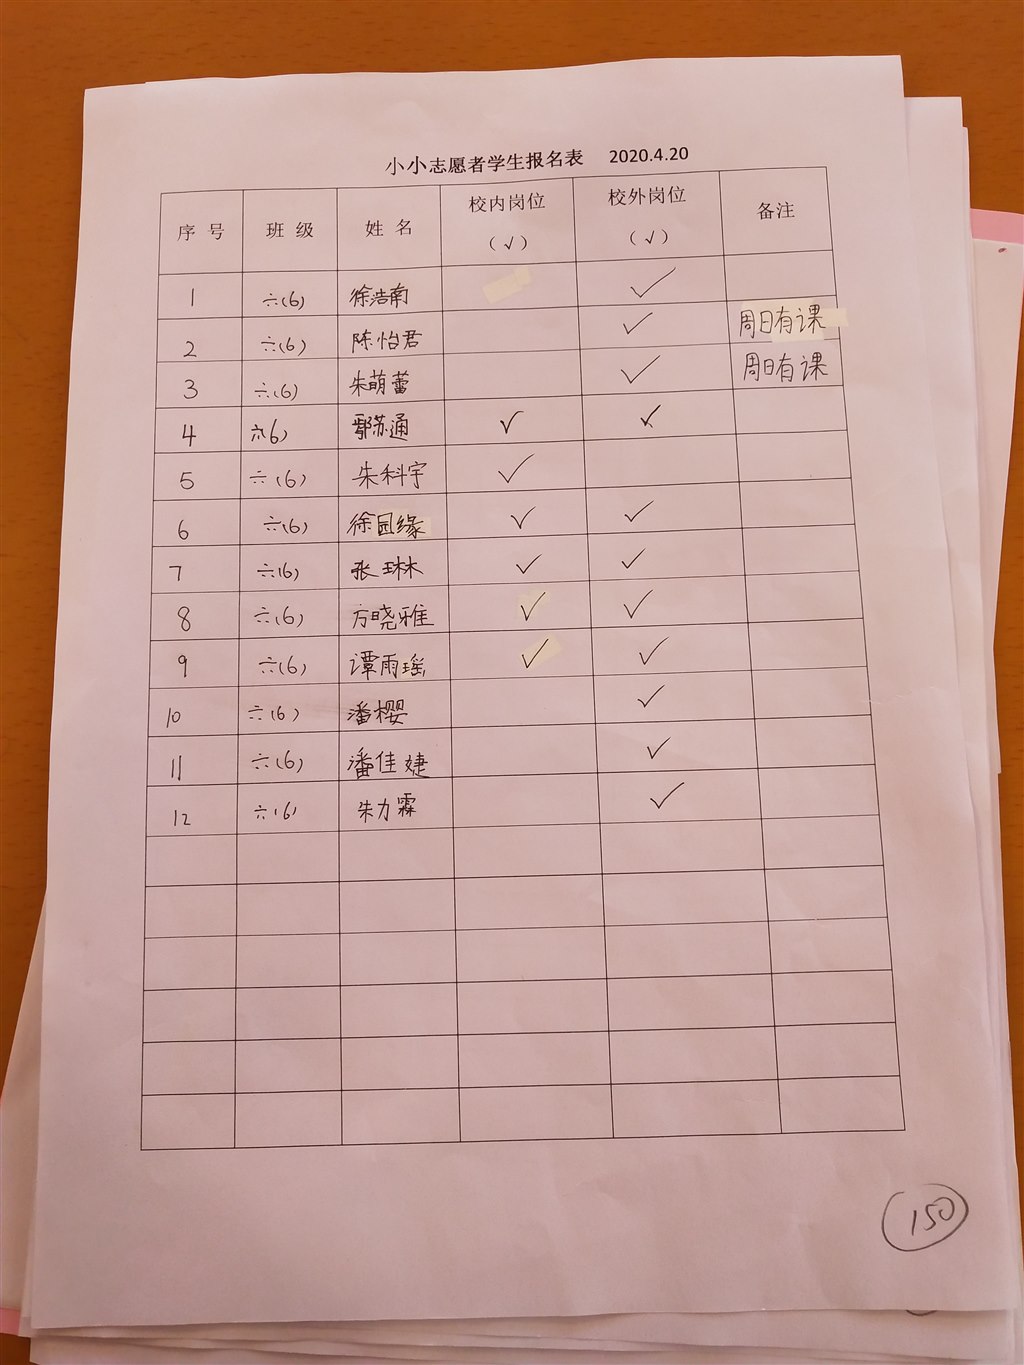 小小志愿者学生报名表 2020.4.20
序号 班级 姓名 校内岗位（√） 校外岗位（√） 备注
1 六(6) 徐浩南 √
2 六(6) 陈怡君 √ 周日有课
3 六(6) 朱萌蕾 √ 周日有课
4 六6) 鄢苏通 √ √
5 六(6) 朱科宇 √
6 六(6) 徐园缘 √ √
7 六(6) 张琳 √ √
8 六(6) 方晓雅 √ √
9 六(6) 谭雨瑶 √ √
10 六(6) 潘樱 √
11 六(6) 潘佳婕 √
12 六(6) 朱力霖 √
150